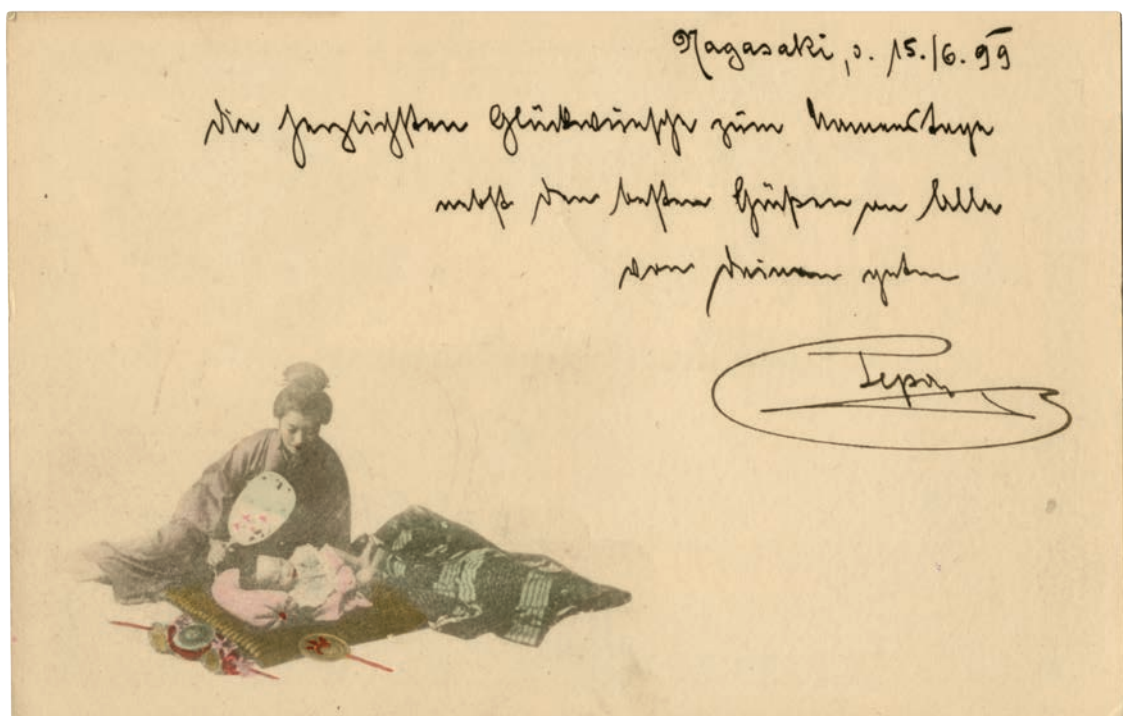 Nagasaki, d. 15./6. 99
Die herzlichsten Glückwünsche zum Namenstage
nebst den besten Grüßen an Alle
von Deinem guten
Pepa